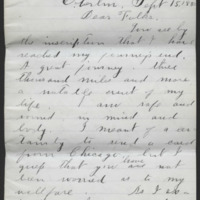 Oberlin, Sept 15
Dear Folks,
You see by
the inscription that I have
reached my journey's end.
A great journey. This
thousand miles and more
a notable event of my
life. I am safe and
sound in mind and
body. I meant of a cer-
tainty to send a card
from Chicago, but I
guess that you have not
been worried as to my
wellfare. As I